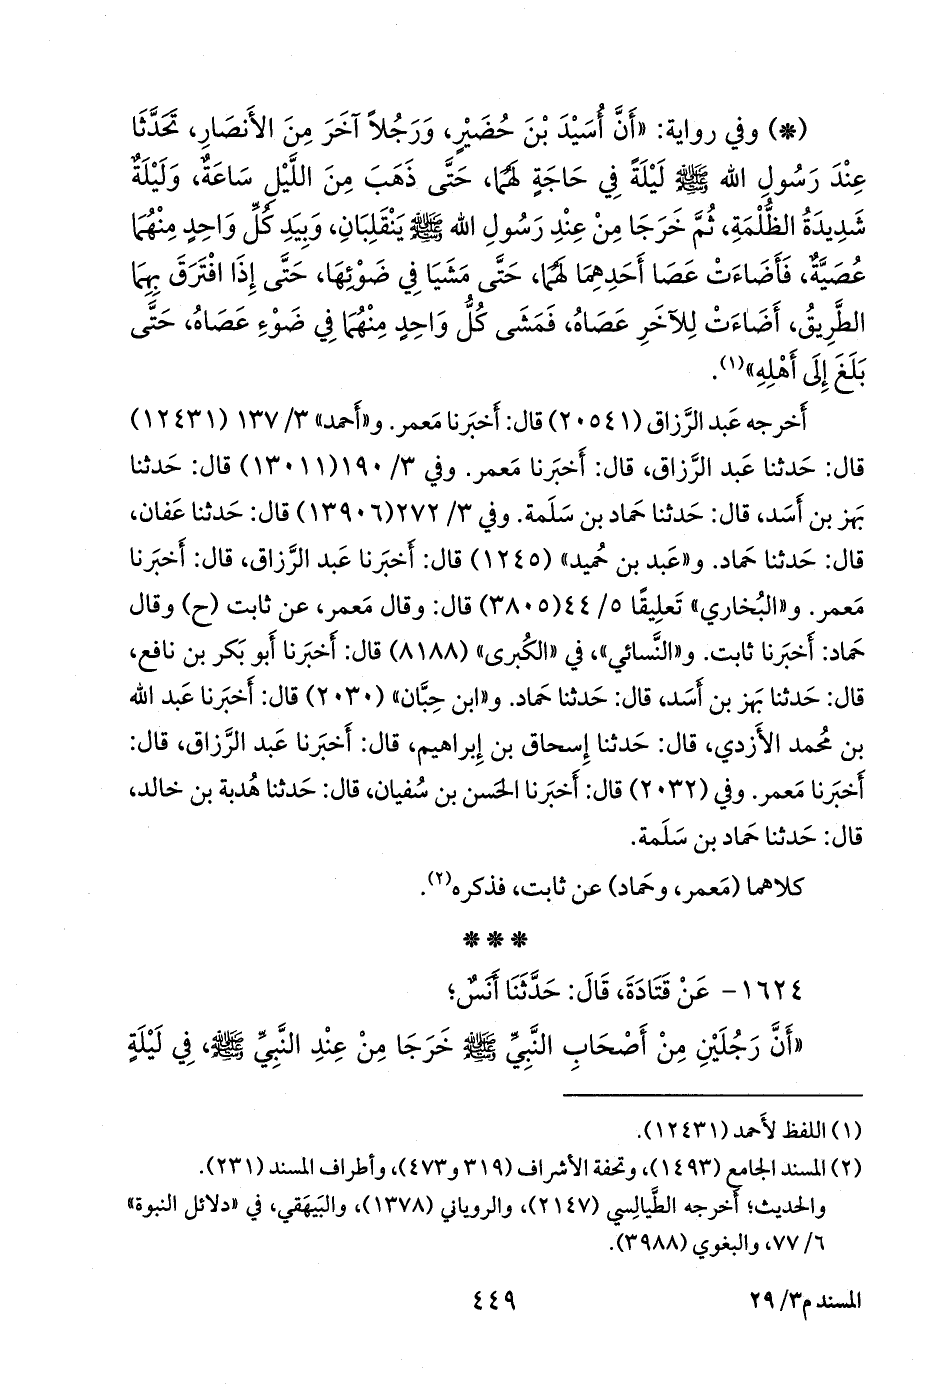 (*) وفي رواية: «أَنَّ أُسَيْدَ بْنَ حُضَيْرٍ، وَرَجُلاً آخَرَ مِنَ الأَنصَارِ، تَحَدَّثَا
عِنْدَ رَسُولِ الله ﷺ لَيْلَةً فِي حَاجَةٍ لَهُمَا، حَتَّى ذَهَبَ مِنَ اللَّيْلِ سَاعَةٌ، وَلَيْلَةٌ
شَدِيدَةُ الظُّلْمَةِ، ثُمَّ خَرَجَا مِنْ عِنْدِ رَسُولِ الله ﷺ يَنْقَلِبَانِ، وَبِيَدِ كُلِّ وَاحِدٍ مِنْهُمَا
عُصَيَّةٌ، فَأَضَاءَتْ عَصَا أَحَدِهِمَا لَهُمَا، حَتَّى مَشَيَا فِي ضَوْئِهَا، حَتَّى إِذَا افْتَرَقَ بِهِمَا
الطَّرِيقُ، أَضَاءَتْ لِلآخَرِ عَصَاهُ، فَمَشَى كُلُّ وَاحِدٍ مِنْهُمَا فِي ضَوْءِ عَصَاهُ، حَتَّى
بَلَغَ إِلَى أَهْلِهِ»(١).
أَخرجه عَبد الرَّزاق (٢٠٥٤١) قال: أَخبَرنا مَعمر. و«أَحمد» ٣/ ١٣٧ (١٢٤٣١)
قال: حَدثنا عَبد الرَّزاق، قال: أَخبَرنا مَعمر. وفي ٣/ ١٩٠(١٣٠١١) قال: حَدثنا
بَهز بن أَسَد، قال: حَدثنا حَماد بن سَلَمة. وفي ٣/ ٢٧٢(١٣٩٠٦) قال: حَدثنا عَفان،
قال: حَدثنا حَماد. و«عَبد بن حُميد» (١٢٤٥) قال: أَخبَرنا عَبد الرَّزاق، قال: أَخبَرنا
مَعمر. و«البُخاري» تَعليقًا ٥/ ٤٤(٣٨٠٥) قال: وقال مَعمر، عن ثابت (ح) وقال
حَماد: أَخبَرنا ثابت. و«النَّسائي»، في «الكُبرى» (٨١٨٨) قال: أَخبَرنا أَبو بَكر بن نافع،
قال: حَدثنا بَهز بن أَسَد، قال: حَدثنا حَماد. و«ابن حِبَّان» (٢٠٣٠) قال: أَخبَرنا عَبد الله
بن مُحمد الأَزدي، قال: حَدثنا إِسحاق بن إِبراهيم، قال: أَخبَرنا عَبد الرَّزاق، قال:
أَخبَرنا مَعمر. وفي (٢٠٣٢) قال: أَخبَرنا الحَسن بن سُفيان، قال: حَدثنا هُدبة بن خالد،
قال: حَدثنا حَماد بن سَلَمة.
كلاهما (مَعمر، وحَماد) عن ثابت، فذكره(٢).
***
١٦٢٤- عَنْ قَتَادَةَ، قَالَ: حَدَّثَنَا أَنَسٌ؛
«أَنَّ رَجُلَيْنِ مِنْ أَصْحَابِ النَّبِيِّ ﷺ خَرَجَا مِنْ عِنْدِ النَّبِيِّ ﷺ، فِي لَيْلَةٍ
(١) اللفظ لأَحمد (١٢٤٣١).
(٢) المسند الجامع (١٤٩٣)، وتحفة الأشراف (٣١٩ و٤٧٣)، وأطراف المسند (٢٣١).
والحديث؛ أَخرجه الطَّيالِسي (٢١٤٧)، والروياني (١٣٧٨)، والبَيهَقي، في «دلائل النبوة»
٦/ ٧٧، والبغوي (٣٩٨٨).
المسند م٣/ ٢٩
٤٤٩